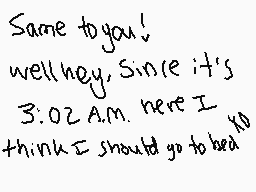 Same to you!
well hey, Since it's
3:02 A.M. here I
think I should go to bed XD